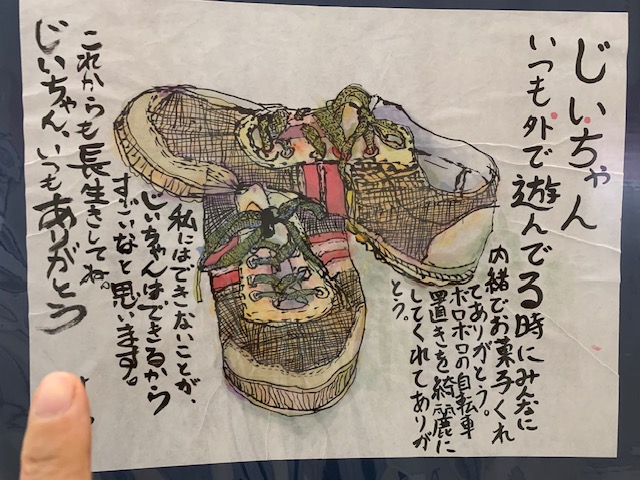 じいちゃん
いつも外で遊んでる時にみんなに
内緒でお菓子くれ
てありがとう。
ボロボロの自転車
置きを綺麗に
してくれてありが
とう。
私にはできないことが、
じいちゃんは、できるから
すごいなと思います。
これからも長生きしてね。
じいちゃん、いつもありがとう